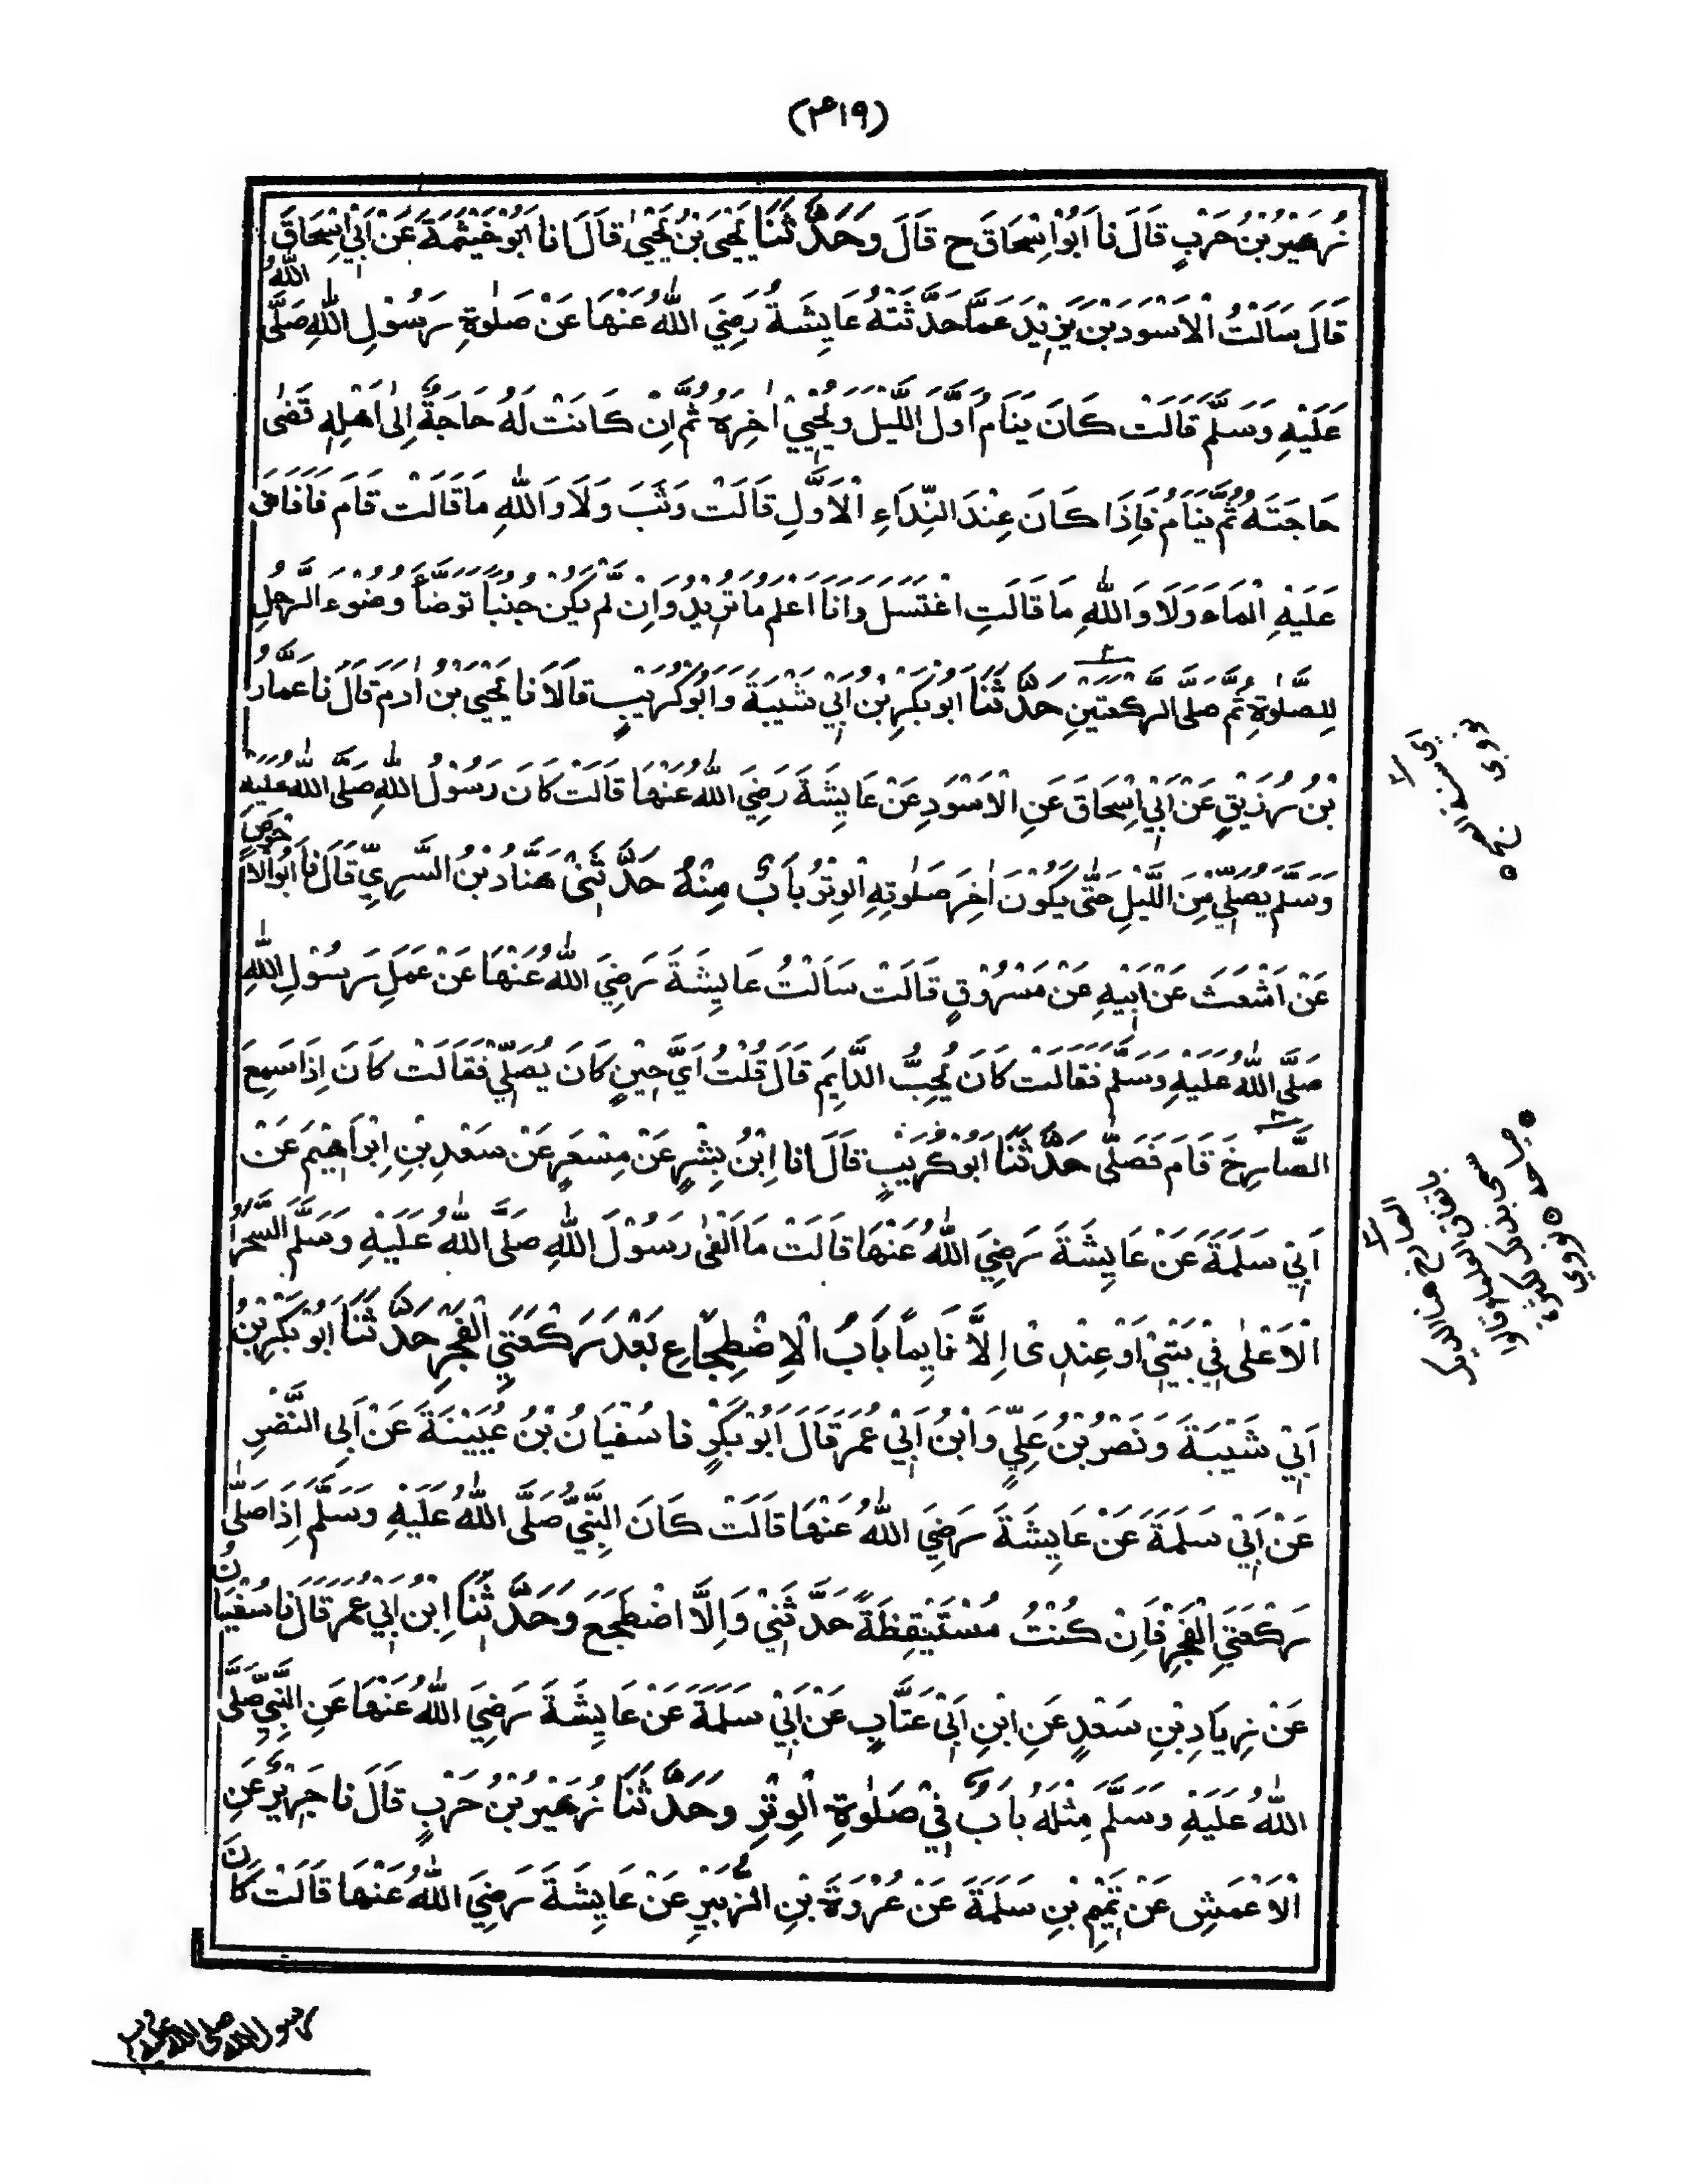 (٤١٩)
زُهَيْرُ بْنُ حَرْبٍ قَالَ نا اَبُوْ اِسْحَاقَ ح قَالَ وَحَدَّثَنَا يَحْيَى بْنُ يَحْيٰى قَالَ انا اَبُوْ خَيْثَمَةَ عَنْ اَبِيْ اِسْحَاقَ
قَالَ سَاَلْتُ الْاَسْوَدَ بْنَ يَزِيْدَ عَمَّا حَدَّثَتْهُ عَايِشَةُ رَضِيَ اللّٰهُ عَنْهَا عَنْ صَلٰوةِ رَسُوْلِ اللّٰهِ صَلَّى اللّٰهُ
عَلَيْهِ وَسَلَّمَ قَالَتْ كَانَ يَنَامُ اَوَّلَ اللَّيْلِ وَيُحْيِيْ اٰخِرَهُ ثُمَّ اِنْ كَانَتْ لَهُ حَاجَةٌ اِلٰى اَهْلِهٖ قَضٰى
حَاجَتَهُ ثُمَّ يَنَامُ فَاِذَا كَانَ عِنْدَ النِّدَاءِ الْاَوَّلِ قَالَتْ وَثَبَ وَلَا وَاللّٰهِ مَا قَالَتْ قَامَ فَاَفَاضَ
عَلَيْهِ الْمَاءَ وَلَا وَاللّٰهِ مَا قَالَتِ اغْتَسَلَ وَانَا اَعْلَمُ مَا تُرِيْدُ وَاِنْ لَّمْ يَكُنْ جُنُبًا تَوَضَّأَ وُضُوْءَ الرَّجُلِ
لِلصَّلٰوةِ ثُمَّ صَلَّى الرَّكْعَتَيْنِ حَدَّثَنَا اَبُوْ بَكْرِ بْنُ اَبِيْ شَيْبَةَ وَاَبُوْ كُرَيْبٍ قَالَا نا يَحْيَى بْنُ اٰدَمَ قَالَ نا عَمَّارُ
بْنُ رُزَيْقٍ عَنْ اَبِيْ اِسْحَاقَ عَنِ الْاَسْوَدِ عَنْ عَايِشَةَ رَضِيَ اللّٰهُ عَنْهَا قَالَتْ كَانَ رَسُوْلُ اللّٰهِ صَلَّى اللّٰهُ عَلَيْهِ
وَسَلَّمَ يُصَلِّيْ مِنَ اللَّيْلِ حَتّٰى يَكُوْنَ اٰخِرَ صَلٰوتِهِ الْوِتْرُ بَابٌ مِنْهُ حَدَّثَنِيْ هَنَّادُ بْنُ السَّرِيِّ قَالَ نا اَبُو الْاَحْوَصِ
عَنْ اَشْعَثَ عَنْ اَبِيْهِ عَنْ مَسْرُوْقٍ قَالَتْ سَاَلْتُ عَايِشَةَ رَضِيَ اللّٰهُ عَنْهَا عَنْ عَمَلِ رَسُوْلِ اللّٰهِ
صَلَّى اللّٰهُ عَلَيْهِ وَسَلَّمَ فَقَالَتْ كَانَ يُحِبُّ الدَّايِمَ قَالَ قُلْتُ اَيَّ حِيْنٍ كَانَ يُصَلِّيْ فَقَالَتْ كَانَ اِذَا سَمِعَ
الصَّارِخَ قَامَ فَصَلّٰى حَدَّثَنَا اَبُوْ كُرَيْبٍ قَالَ انا اِبْنُ بِشْرٍ عَنْ مِسْعَرٍ عَنْ سَعْدِ بْنِ اِبْرَاهِيْمَ عَنْ
اَبِيْ سَلَمَةَ عَنْ عَايِشَةَ رَضِيَ اللّٰهُ عَنْهَا قَالَتْ مَا اَلْفٰى رَسُوْلَ اللّٰهِ صَلَّى اللّٰهُ عَلَيْهِ وَسَلَّمَ السَّحَرُ
الْاَعْلٰى فِيْ بَيْتِيْ اَوْ عِنْدِىْ اِلَّا نَايِمًا بَابُ الْاِضْطِجَاعِ بَعْدَ رَكْعَتَيِ الْفَجْرِ حَدَّثَنَا اَبُوْ بَكْرِ بْنُ
اَبِيْ شَيْبَةَ وَنَصْرُ بْنُ عَلِيٍّ وَابْنُ اَبِيْ عُمَرَ قَالَ اَبُوْ بَكْرٍ نا سُفْيَانُ بْنُ عُيَيْنَةَ عَنْ اَبِى النَّضْرِ
عَنْ اَبِيْ سَلَمَةَ عَنْ عَايِشَةَ رَضِيَ اللّٰهُ عَنْهَا قَالَتْ كَانَ النَّبِيُّ صَلَّى اللّٰهُ عَلَيْهِ وَسَلَّمَ اِذَا صَلّٰى
رَكْعَتَيِ الْفَجْرِ فَاِنْ كُنْتُ مُسْتَيْقِظَةً حَدَّثَنِيْ وَاِلَّا اضْطَجَعَ وَحَدَّثَنَا اِبْنُ اَبِيْ عُمَرَ قَالَ نا سُفْيَانُ
عَنْ زِيَادِ بْنِ سَعْدٍ عَنِ ابْنِ اَبِيْ عَتَّابٍ عَنْ اَبِيْ سَلَمَةَ عَنْ عَايِشَةَ رَضِيَ اللّٰهُ عَنْهَا عَنِ النَّبِيِّ صَلَّى
اللّٰهُ عَلَيْهِ وَسَلَّمَ مِثْلَهُ بَابٌ فِيْ صَلٰوةِ الْوِتْرِ وَحَدَّثَنَا زُهَيْرُ بْنُ حَرْبٍ قَالَ نا جَرِيْرٌ عَنِ
الْاَعْمَشِ عَنْ تَمِيْمِ بْنِ سَلَمَةَ عَنْ عُرْوَةَ بْنِ الزُّبَيْرِ عَنْ عَايِشَةَ رَضِيَ اللّٰهُ عَنْهَا قَالَتْ كَانَ
الصارخ هنا الديك
باتفاق العلماء قالوا
سمى بذلك لكثرة
صياحه نووي
رسول الله صلى الله عليه وسلم